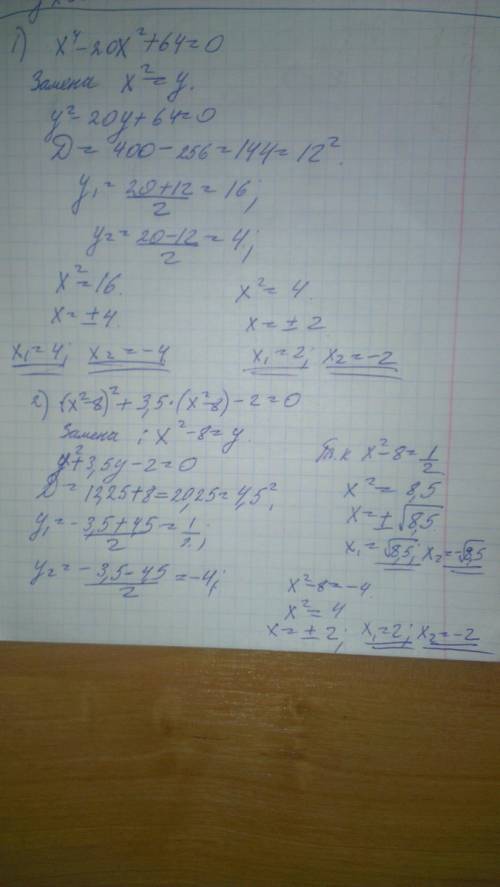 1) x⁴-20x²+64=0
Замена x²=y.
y²-20y+64=0
D=400-256=144=12².
y₁=(20+12)/2=16;
y₂=(20-12)/2=4;
x²=16. x²=4.
x=±4. x=±2
x₁=4; x₂=-4 x₁=2; x₂=-2
2) (x²-8)²+3,5·(x²-8)-2=0
Замена: x²-8=y.
y²+3,5y-2=0
D=12,25+8=20,25=4,5²;
y₁=(-3,5+4,5)/2=1/2;
y₂=(-3,5-4,5)/2=-4;
Т.к x²-8=1/2
x²=8,5
x=±√8,5
x₁=√8,5; x₂=-√8,5
x²-8=-4
x²=4
x=±2; x₁=2; x₂=-2